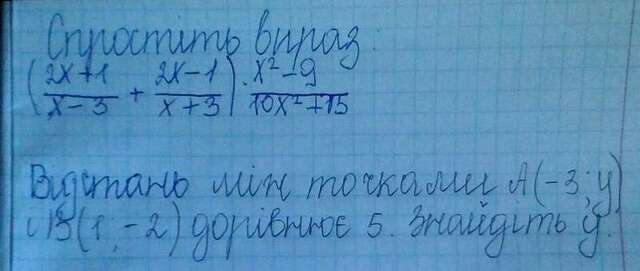 Спростить вираз:
(2x+1/x-3 + 2x-1/x+3) · x²-9/10x²+15
Відстань між точками A(-3; y)
і B(1; -2) дорівнює 5. Знайдіть y.